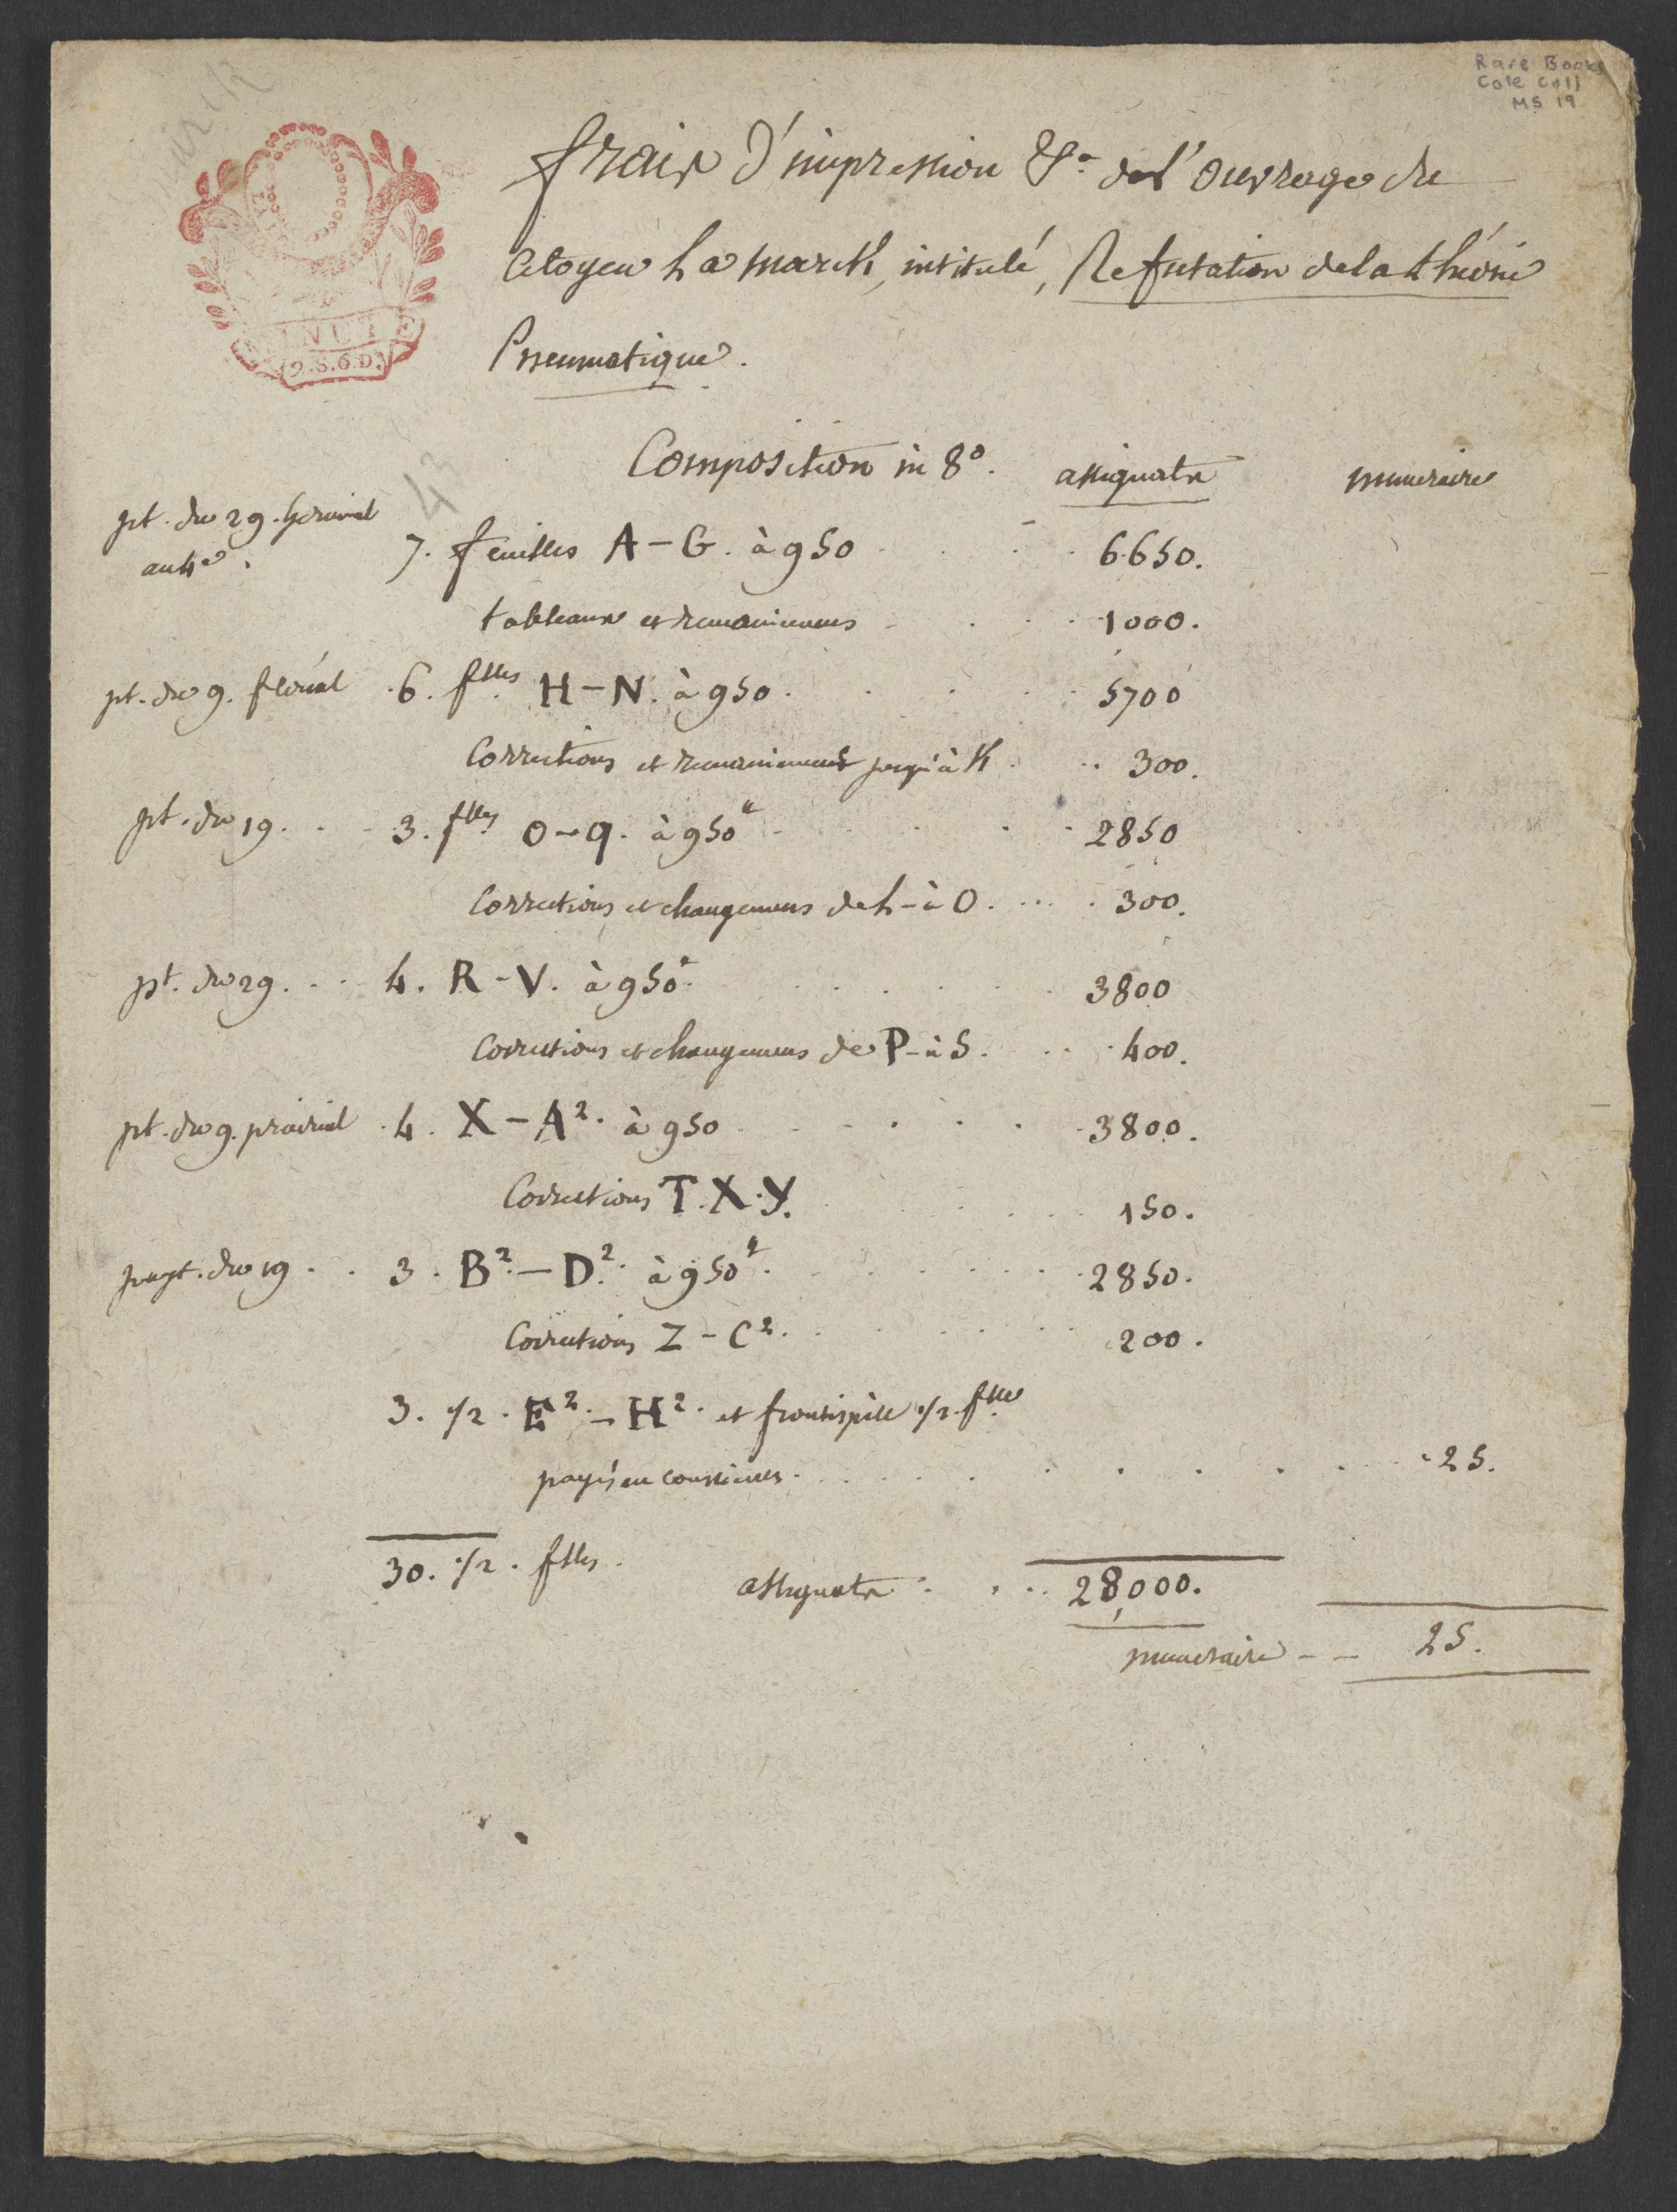 Rare Books
Cole Coll
MS 19
frais d'impression &a. de l'ouvrage du
Citoyen La Marck, intitulé, Refutation de la théorie
Pneumatique.
Composition in 8°. assignats numeraire
pt. du 29. Germinal
an 4e.
7. feuilles A-G. à 950 6650.
tableaux et remaniemens 1000.
pt. du 9. floréal 6. flles H-N. à 950. 5700
Corrections et remaniement jusqu'à K 300.
pt. du 19. 3. flles O-Q. à 950 2850
Corrections et changemens de L-à O. 300.
pt. du 29. 4. R-V. à 950 3800
Corrections et changemens de P-à S. 400.
pt. du 9. prairial 4. X-A2. à 950 3800.
Corrections T.X.Y. 150.
payt. du 19 3. B2.-D2. à 950 2850.
Corrections Z-C2. 200.
3. 1/2. E2.-H2. et frontispice 1/2 flle
payés en 25.
30. 1/2. flles. assignats 28,000.
numeraire -- 25.
NUTE
9.S.6.D.